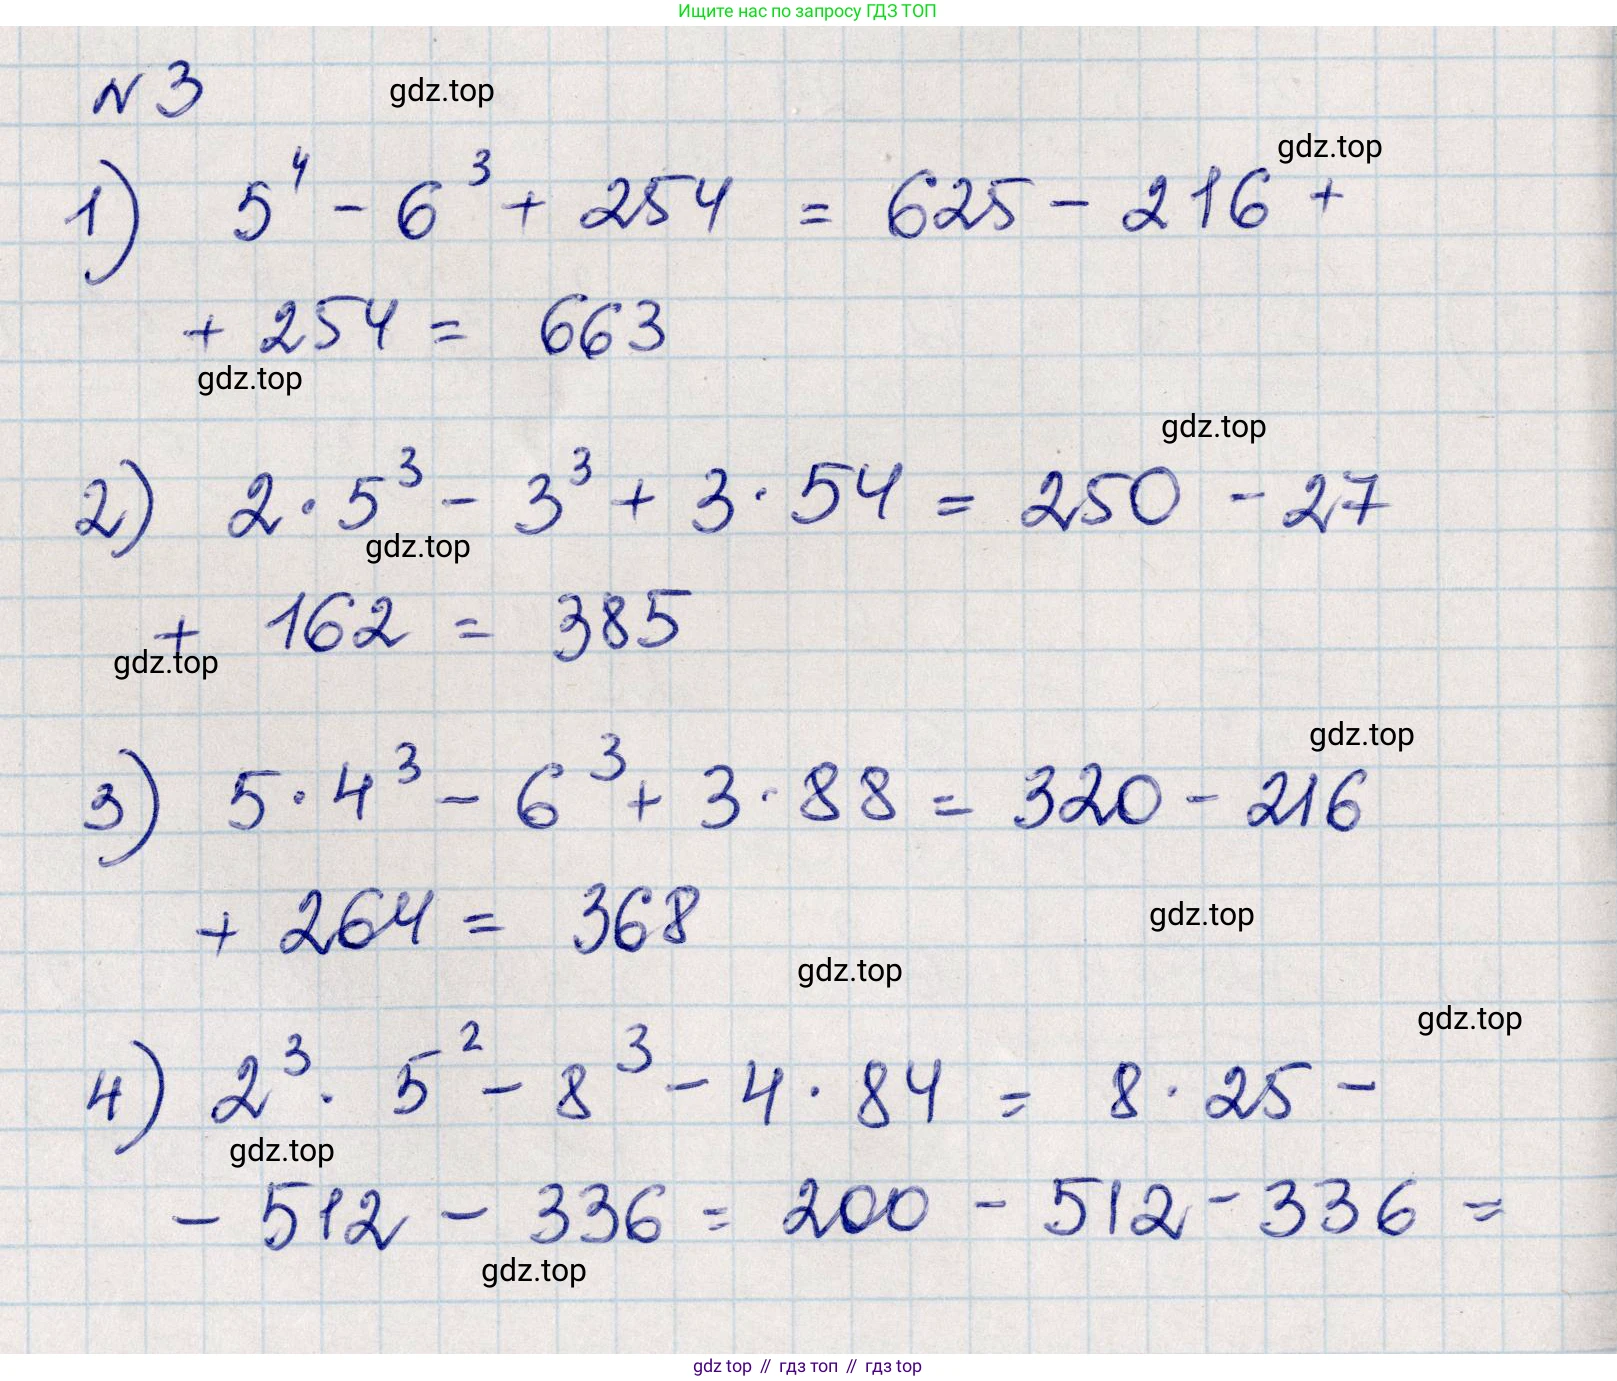 Ищите нас по запросу ГДЗ ТОП
N 3
gdz.top
gdz.top
1) 5⁴ - 6³ + 254 = 625 - 216 +
+ 254 = 663
gdz.top
gdz.top
2) 2 · 5³ - 3³ + 3 · 54 = 250 - 27
gdz.top
+ 162 = 385
gdz.top
gdz.top
3) 5 · 4³ - 6³ + 3 · 88 = 320 - 216
+ 264 = 368
gdz.top
gdz.top
gdz.top
4) 2³ · 5² - 8³ - 4 · 84 = 8 · 25 -
gdz.top
- 512 - 336 = 200 - 512 - 336 =
gdz.top
gdz top // гдз топ // гдз top